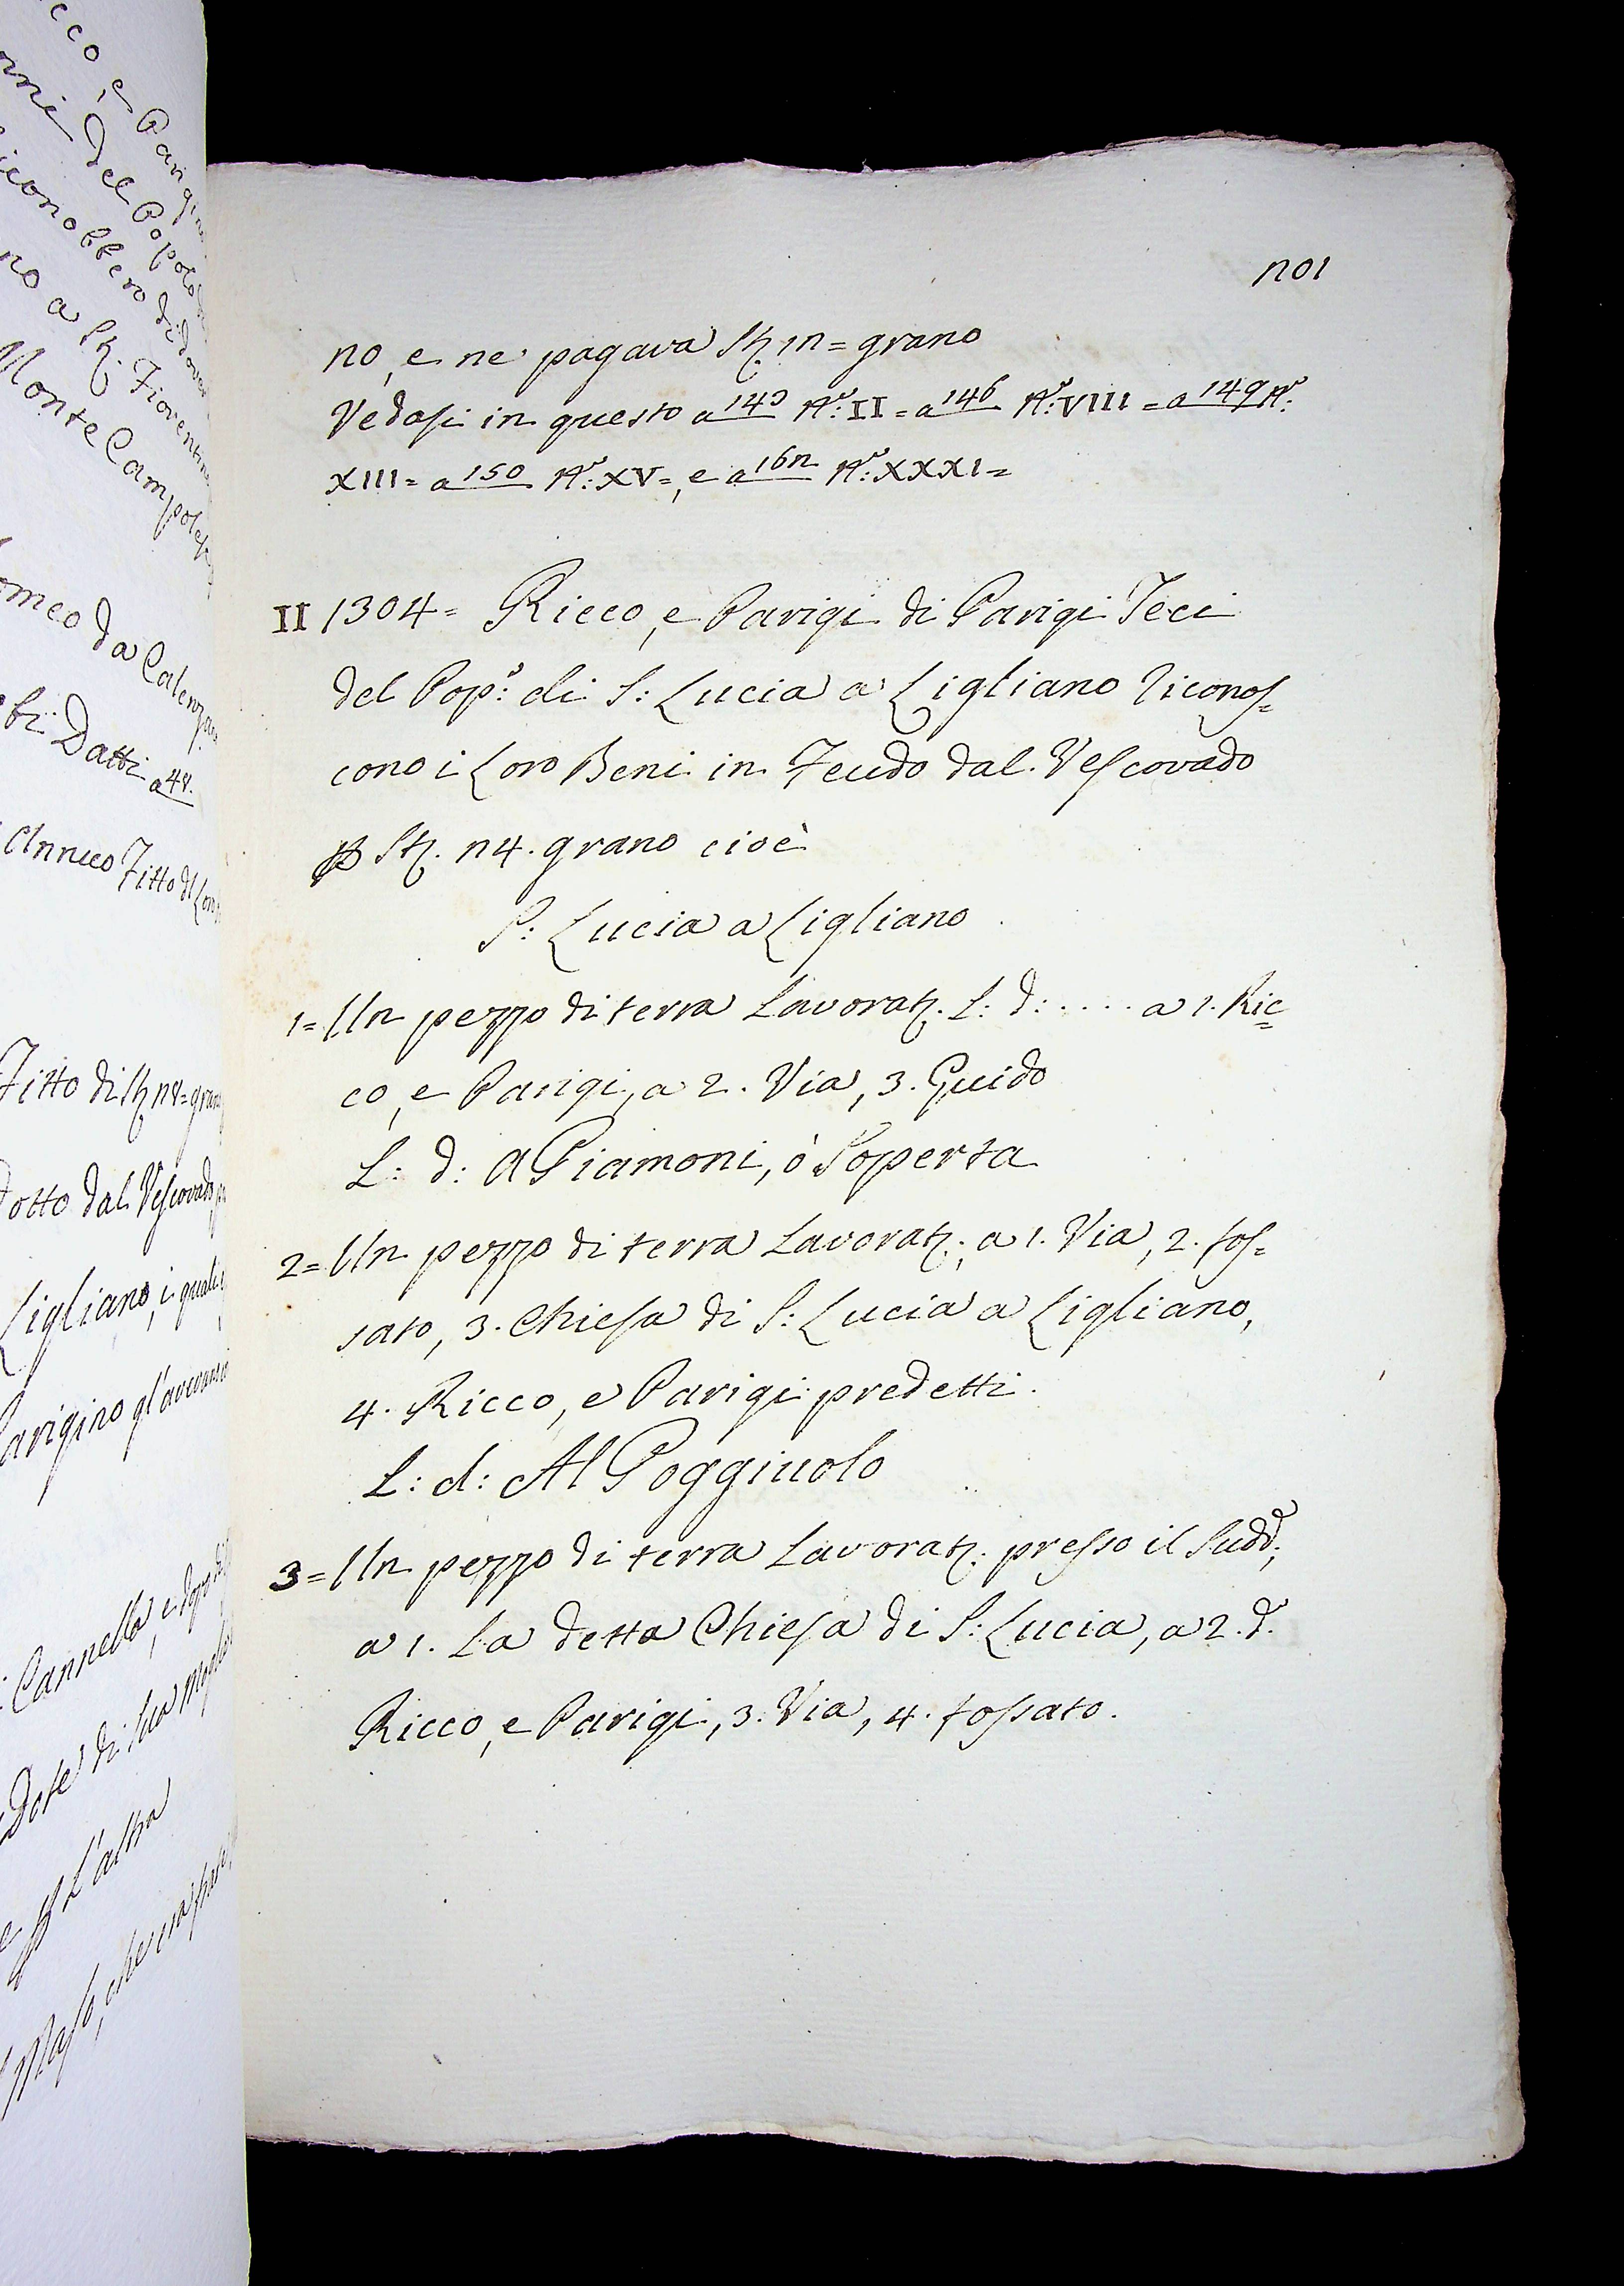 del Popolo
no a St. Fiorentine
Monte Campoles
omeo da Calenzano
bi Datti a 48.
Annuo Fitto di
Fitto di St. 28 = grano
dotto dal Vescovado
Ligliano, i quali
Parigino gl'
Cannella, e dopo
Dote di sua Moglie
e p L'altra
Maso, che era
201
no, e ne pagava St. 12 = grano
Vedasi in questo a 145 N.º: II = a 146 N.º: VIII = a 149 N.º:
XIII = a 150 N.º: XV =, e a 162 N.º: XXXI =
II 1304 = Ricco, e Parigi di Parigi Teci
del Pop.º: di S: Lucia a Ligliano riconos=
cono i Loro Beni in Feudo dal Vescovado
p St. 24. grano cioè
S: Lucia a Ligliano
1 = Un pezzo di terra Lavorat. L: d: .... a 1. Ric=
co, e Parigi, a 2. Via, 3. Guido
L: d: A Piamoni, ò Soperta
2 = Un pezzo di terra Lavorat.; a 1. Via, 2. fos=
sato, 3. Chiesa di S: Lucia a Ligliano,
4. Ricco, e Parigi predetti.
L: d: Al Poggiuolo
3 = Un pezzo di terra Lavorat. presso il Sudd.º;
a 1. La detta Chiesa di S: Lucia, a 2. d.º
Ricco, e Parigi, 3. Via, 4. fossato.